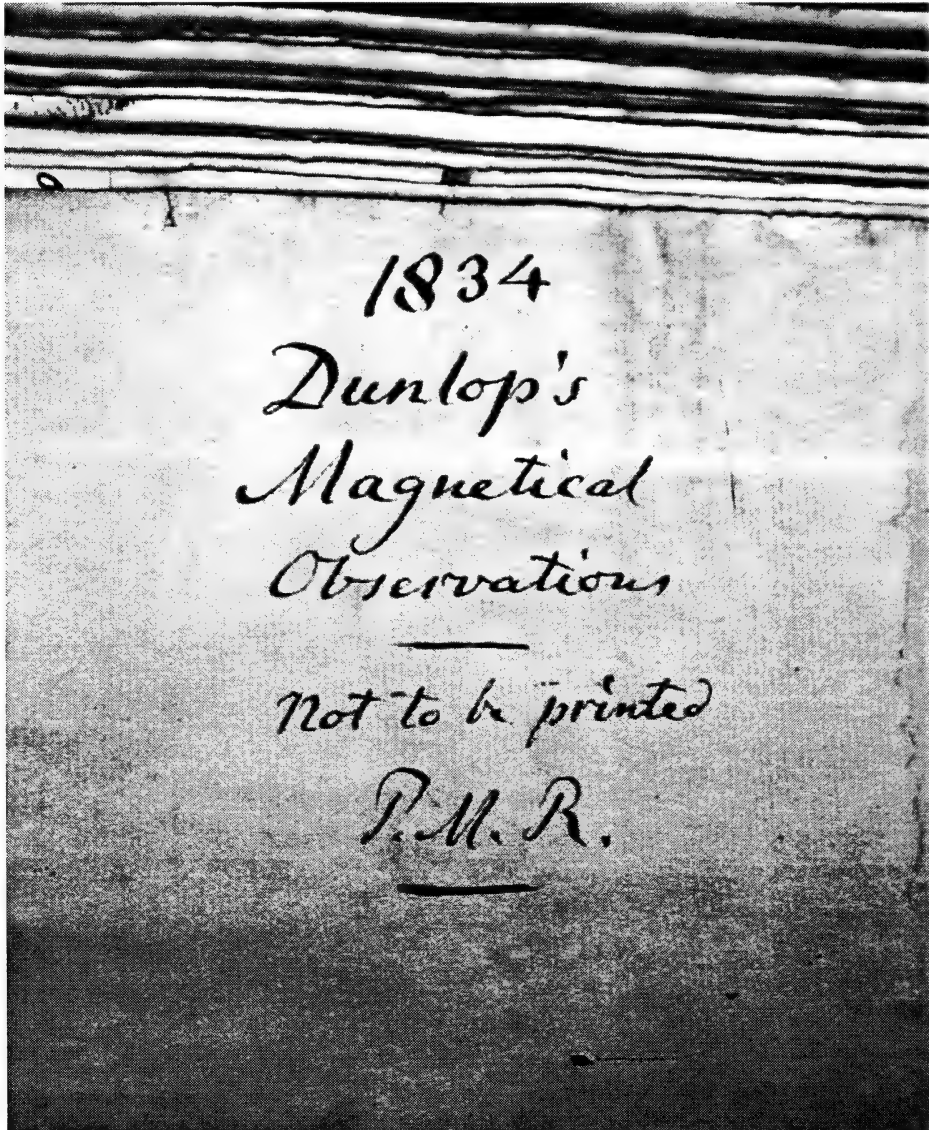 1834
Dunlop's
Magnetical
Observations
Not to be printed
P.M.R.